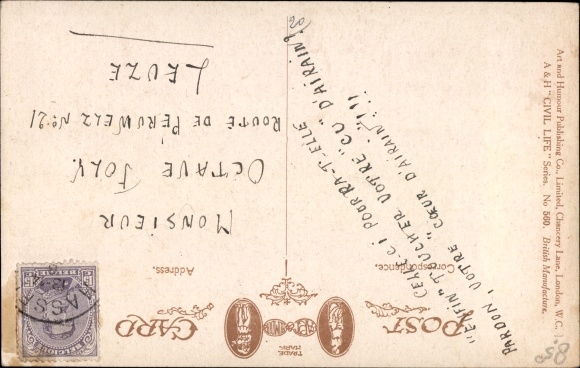 POST CARD
TRADE MARK
Correspondence.
Address.
"ENFIN" CELLE-CI POURRA-T-ELLE
TOUCHER VOTRE "CU" D'AIRAIN?
PARDON, VOTRE "CŒUR D'AIRAIN"!!!
MONSIEUR
OCTAVE JOLY.
ROUTE DE PÉRUWELZ No 21
LEUZE
Art and Humour Publishing Co., Limited, Chancery Lane, London, W.C.
A & H "CIVIL LIFE" Series. No 560. British Manufacture.
BELGIQUE
15
8.50